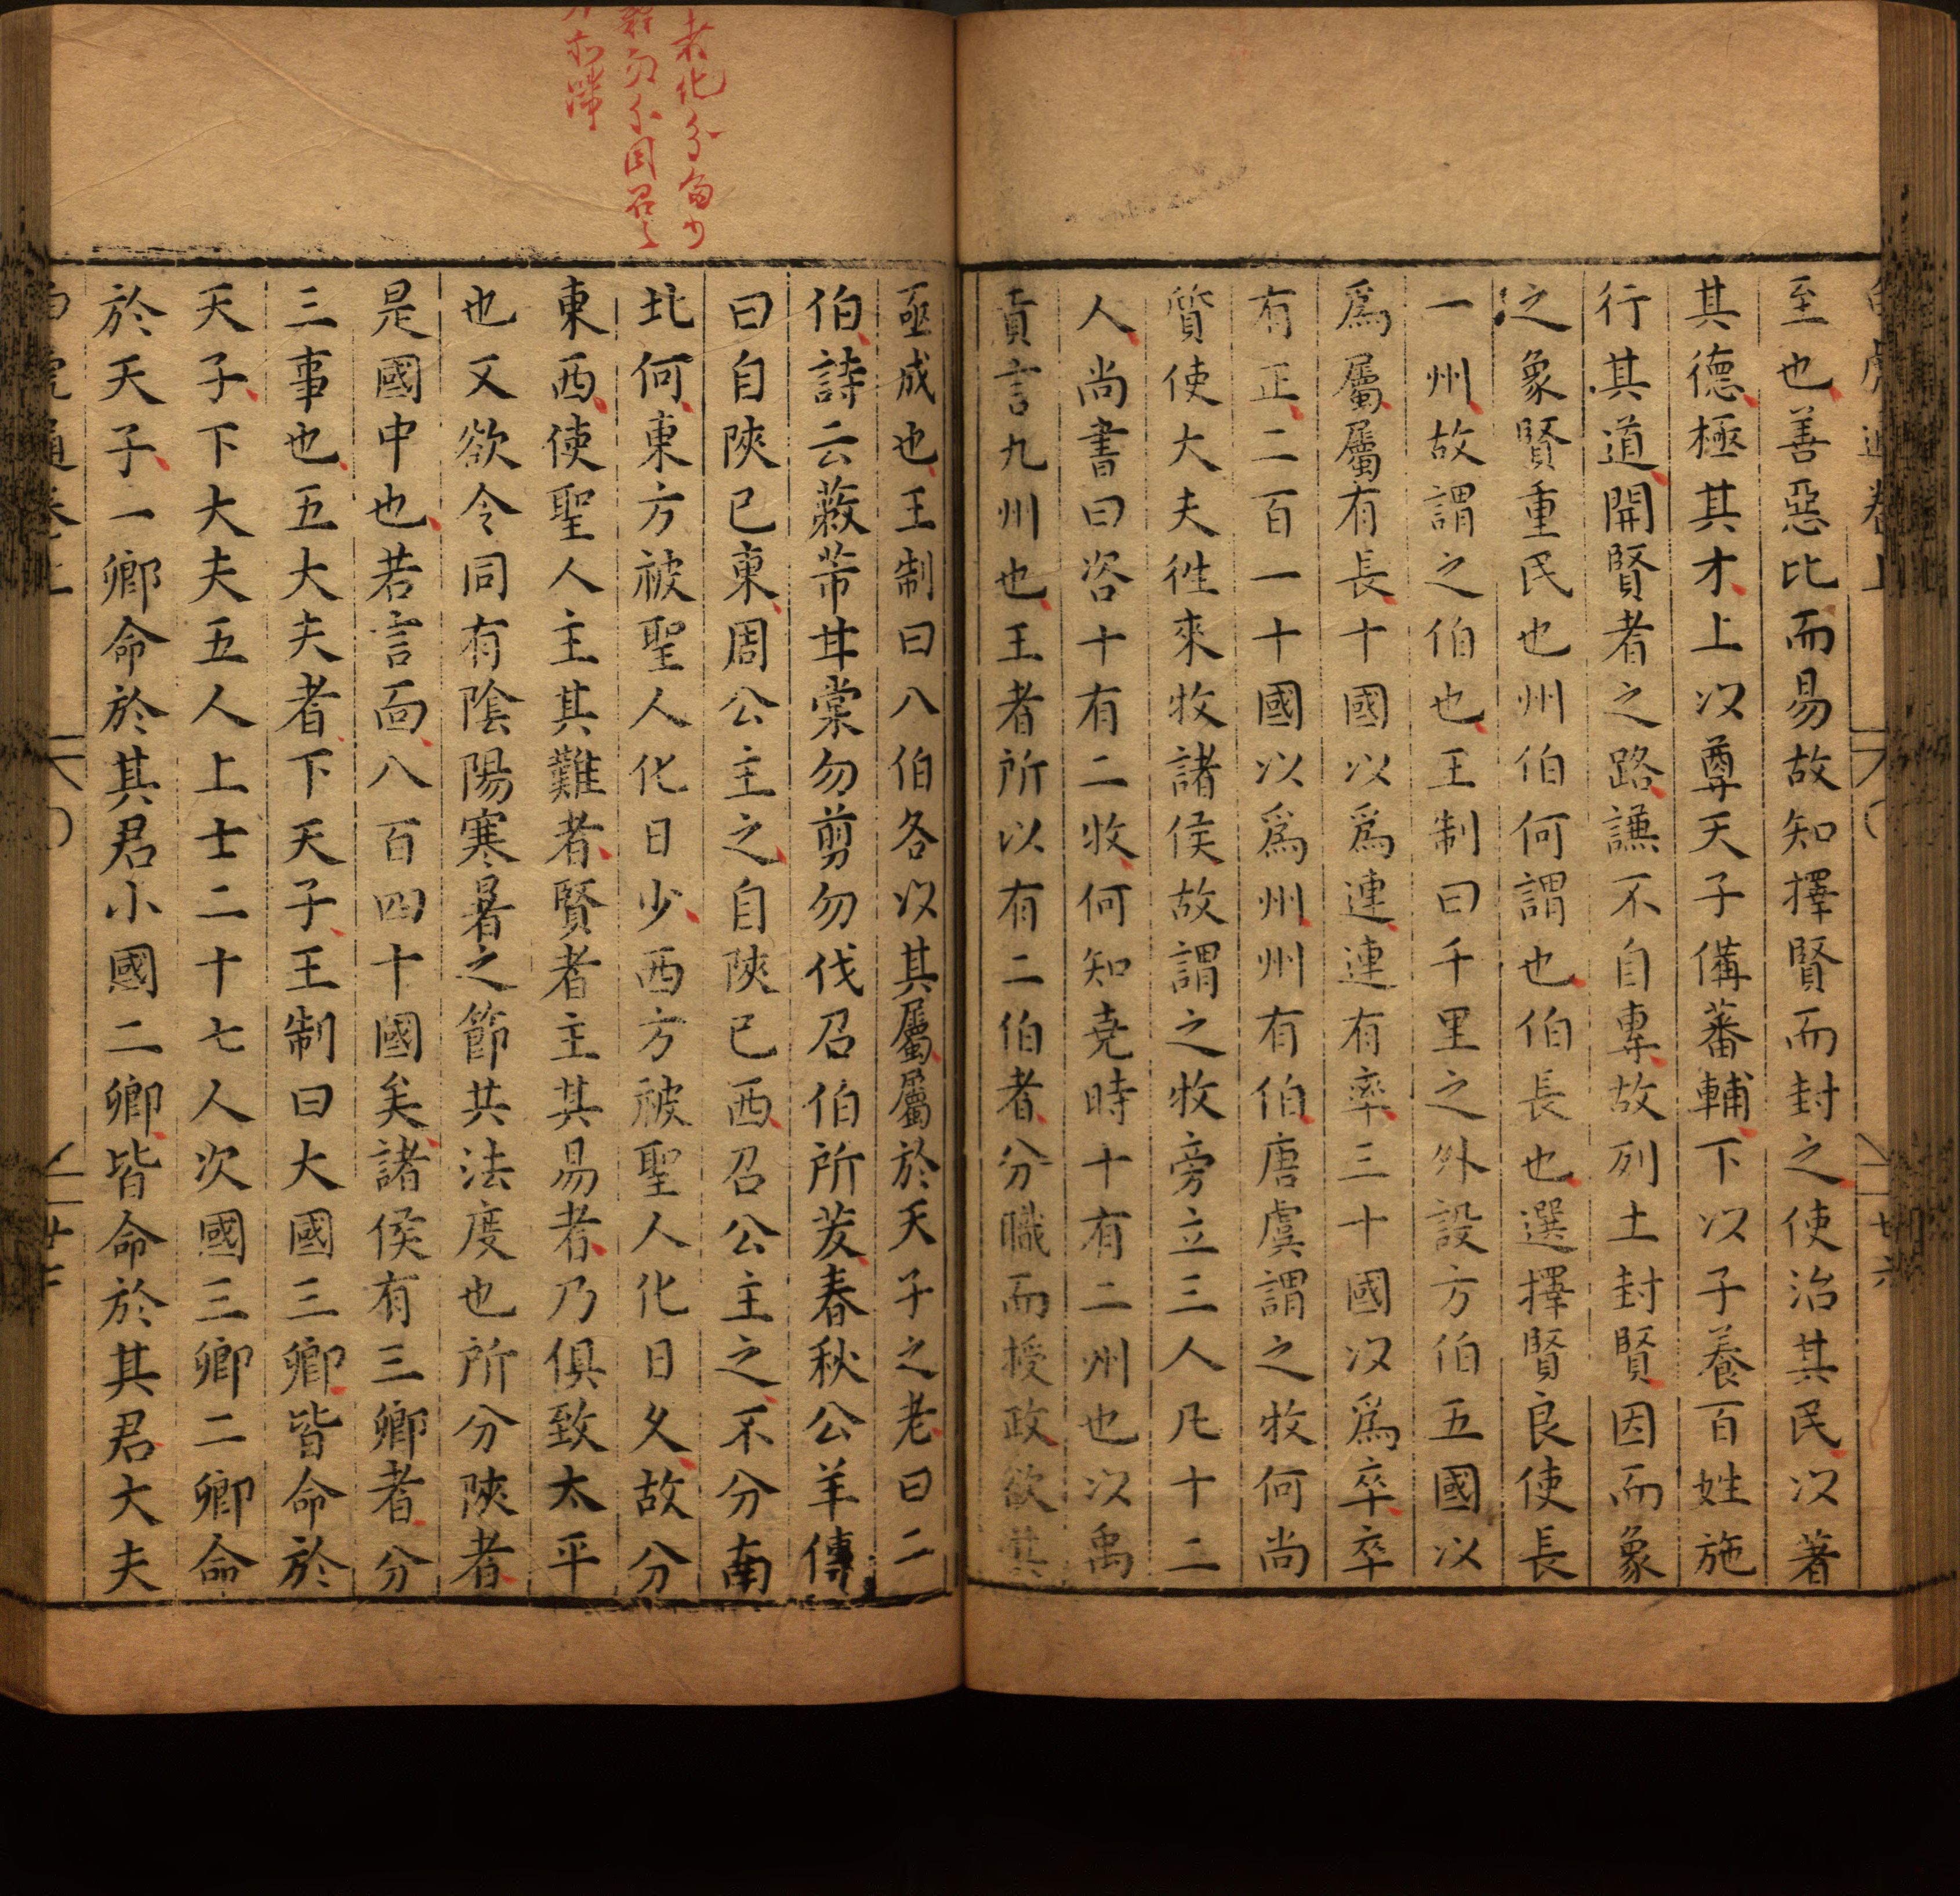 白虎通卷上
廿六
至也善惡比而易故知擇賢而封之使治其民以著
其德極其才上以尊天子備蕃輔下以子養百姓施
行其道開賢者之路謙不自專故列土封賢因而象
之象賢重民也州伯何謂也伯長也選擇賢良使長
一州故謂之伯也王制曰千里之外設方伯五國以
爲屬屬有長十國以爲連連有率三十國以爲卒卒
有正二百一十國以爲州州有伯唐虞謂之牧何尚
質使大夫徃來牧諸侯故謂之牧旁立三人凡十二
人尚書曰咨十有二牧何知堯時十有二州也以禹
貢言九州也王者所以有二伯者分職而授政欲其
亟成也王制曰八伯各以其屬屬於天子之老曰二
伯詩云蔽芾甘棠勿剪勿伐召伯所茇春秋公羊傳
曰自陝已東周公主之自陝已西召公主之不分南
北何東方被聖人化日少西方被聖人化日久故分
東西使聖人主其難者賢者主其易者乃俱致太平
也又欲令同有陰陽寒暑之節共法度也所分陝者
是國中也若言面八百四十國矣諸侯有三卿者分
三事也五大夫者下天子王制曰大國三卿皆命於
天子下大夫五人上士二十七人次國三卿二卿命
於天子一卿命於其君小國二卿皆命於其君大夫
白虎通卷上